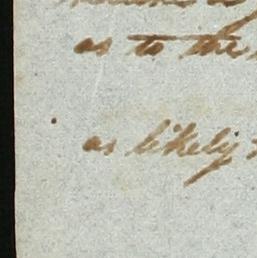 as to the
as likely